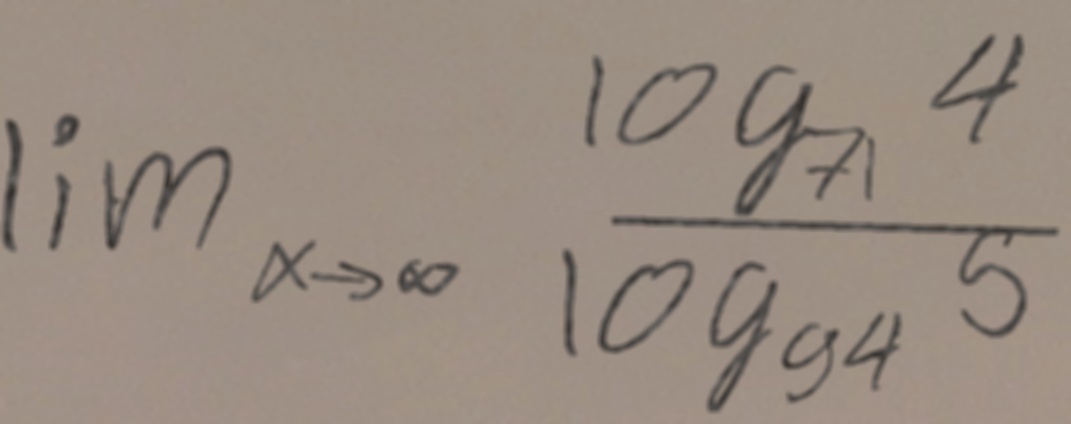 lim_{x→∞} \frac{log_{71} 4}{log_{94} 5}